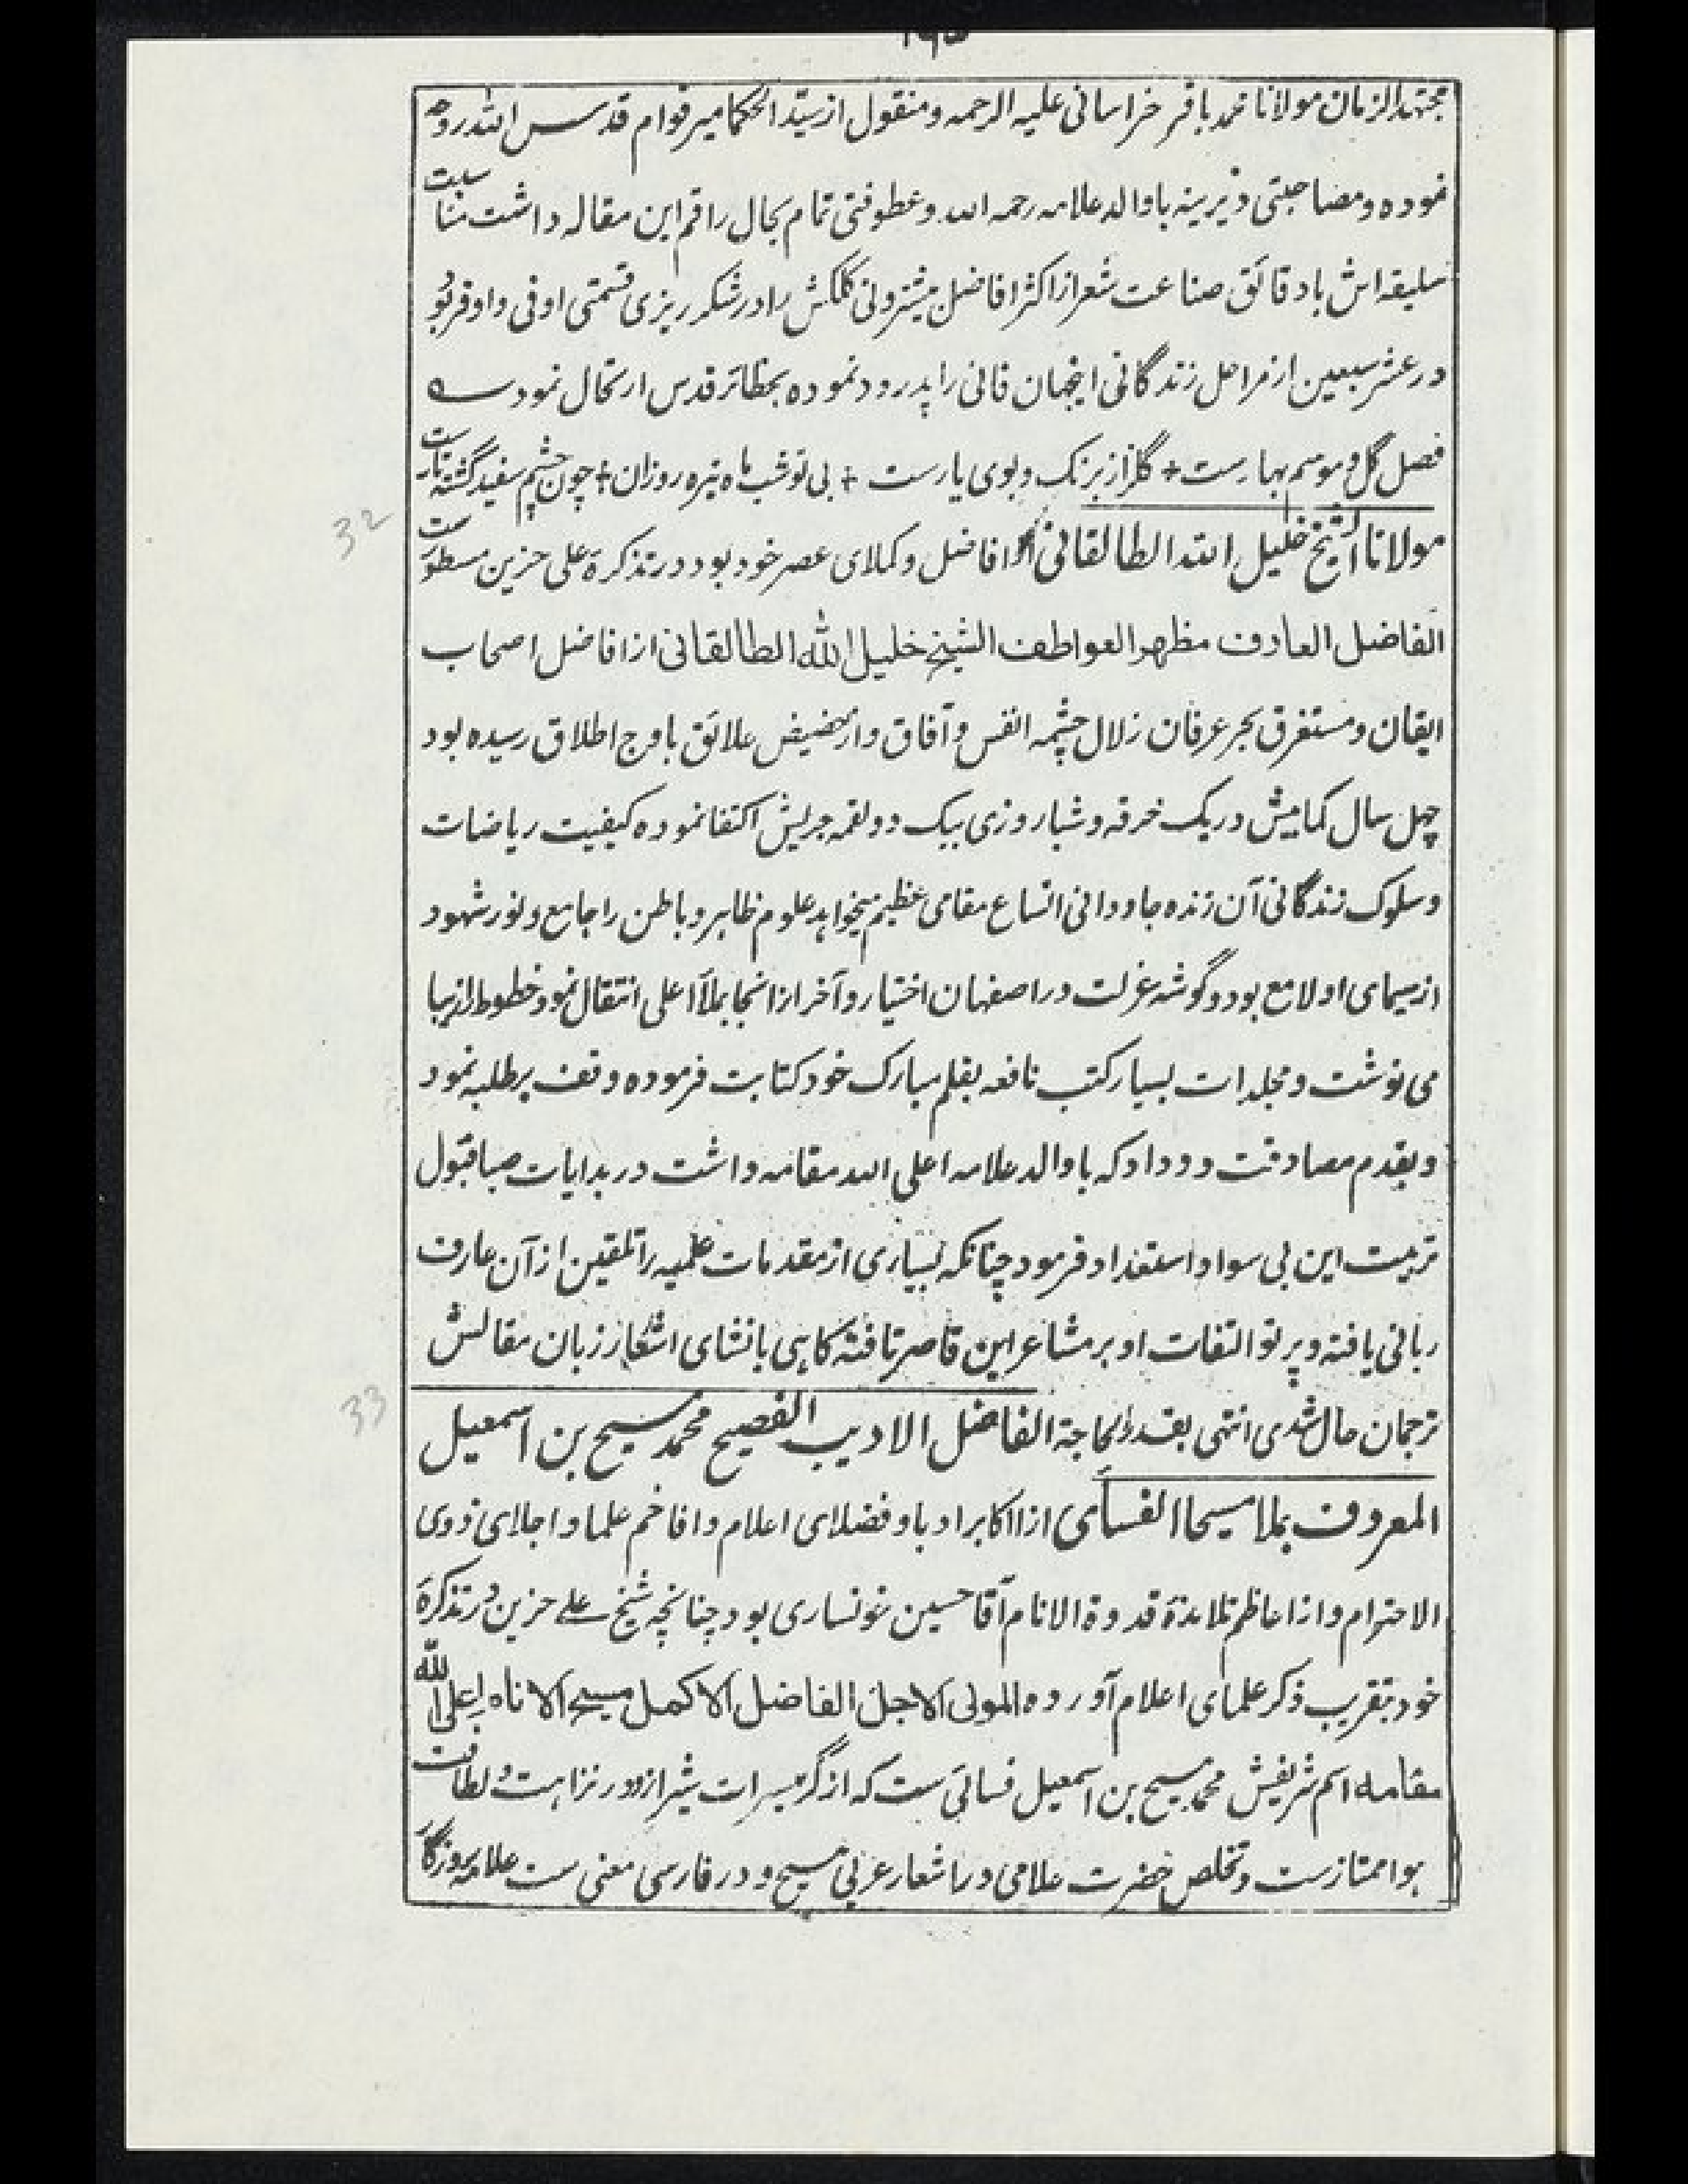 مجتهد الزمان مولانا محمد باقر خراسانی علیه الرحمه و منقول از سید الحکما میر قوام قدس الله روحه
نموده و مصاحبتی دیرینه با والد علامه رحمه الله و عطوفتی تمام بحال راقم این مقاله داشت مناسبت
سلیقه اش با دقائق صناعت شعر از اکثر افاضل بیشتر و نی کلکش را در شکر ریزی قسمتی اوفی و اوفر بود
در عشر سبعین از مراحل زندگانی اینجهان فانی را پدرود نموده بحظائر قدس ارتحال نمود سه
فصل گل و موسم بهارست + گلزار برنک و بوی یارست + بی تو شب ماه تیره روزان + چون چشم سفید گشته تارست
32
مولانا الشیخ خلیل الله الطالقانی از افاضل و کملای عصر خود بود در تذکرهٔ علی حزین مسطورست
الفاضل العارف مظهر العواطف الشیخ خلیل الله الطالقانی از افاضل اصحاب
ایقان و مستغرق بحر عرفان زلال چشمه انفس و آفاق و از حضیض علائق باوج اطلاق رسیده بود
چهل سال کمابیش در یک خرقه و شباروزی بیک دو لقمه جریش اکتفا نموده کیفیت ریاضات
و سلوک زندگانی آن زنده جاودانی اتساع مقامی عظیم میخواهد علوم ظاهر و باطن را جامع و نور شهود
از سیمای او لامع بود و گوشه عزلت در اصفهان اختیار و آخر از انجا بملأ اعلی انتقال نمود خطوط را زیبا
می نوشت و مجلدات بسیار کتب نافعه بقلم مبارک خود کتابت فرموده وقف بر طلبه نمود
و بقدم مصادقت و وداد که با والد علامه اعلی الله مقامه داشت در بدایات صبا قبول
تربیت این بی سواد استعداد فرمود چنانکه بسیاری از مقدمات علمیه را تلقین از آن عارف
ربانی یافته و پرتو التفات او بر مشاعر این قاصر تافته کاهی بانشای اشعار زبان مقالش
33
ترجمان حال شدی انتهی بقدر الحاجة الفاضل الادیب الفصیح محمد مسیح بن اسمعیل
المعروف بملا مسیحا الفسائی از اکابر ادبا و فضلای اعلام و افاخم علما و اجلای ذوی
الاحترام و از اعاظم تلامذهٔ قدوة الانام آقا حسین خونساری بود چنانچه شیخ علی حزین در تذکرهٔ
خود بتقریب ذکر علمای اعلام آورده المولی الاجل الفاضل الاکمل مسیح الاناه اعلی الله
مقامه اسم شریفش محمد مسیح بن اسمعیل فسائی ست که از گرمسیرات شیراز و در نزاهت و لطافت
هوا ممتازست و تخلص حضرت علامی در اشعار عربی مسیح و در فارسی معنی ست علامهٔ روزگار